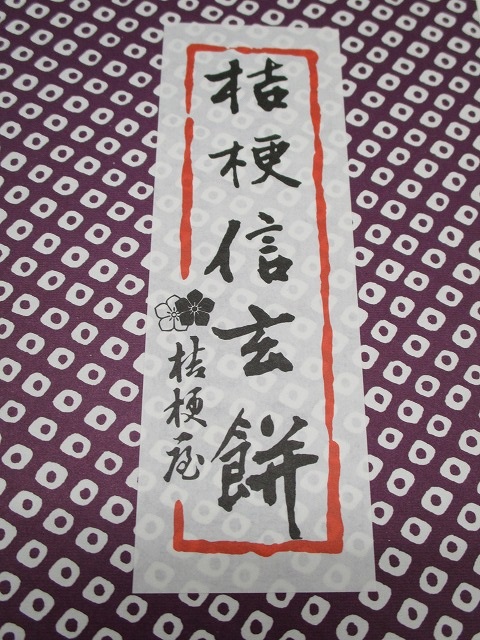 桔梗信玄餅
桔梗屋